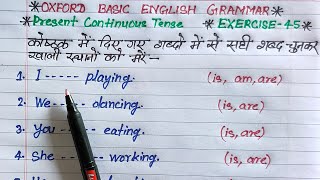 *OXFORD BASIC ENGLISH GRAMMAR*
*Present Continuous Tense *EXERCISE-45
कोष्ठक में दिए गए शब्दों में से सही शब्द चुनकर
खाली स्थानों को भरें-
1. I ----- playing. (is, am, are)
2. We ----- dancing. (is, are)
3. You ----- eating. (is, are)
4. She ---- working. (is, are)